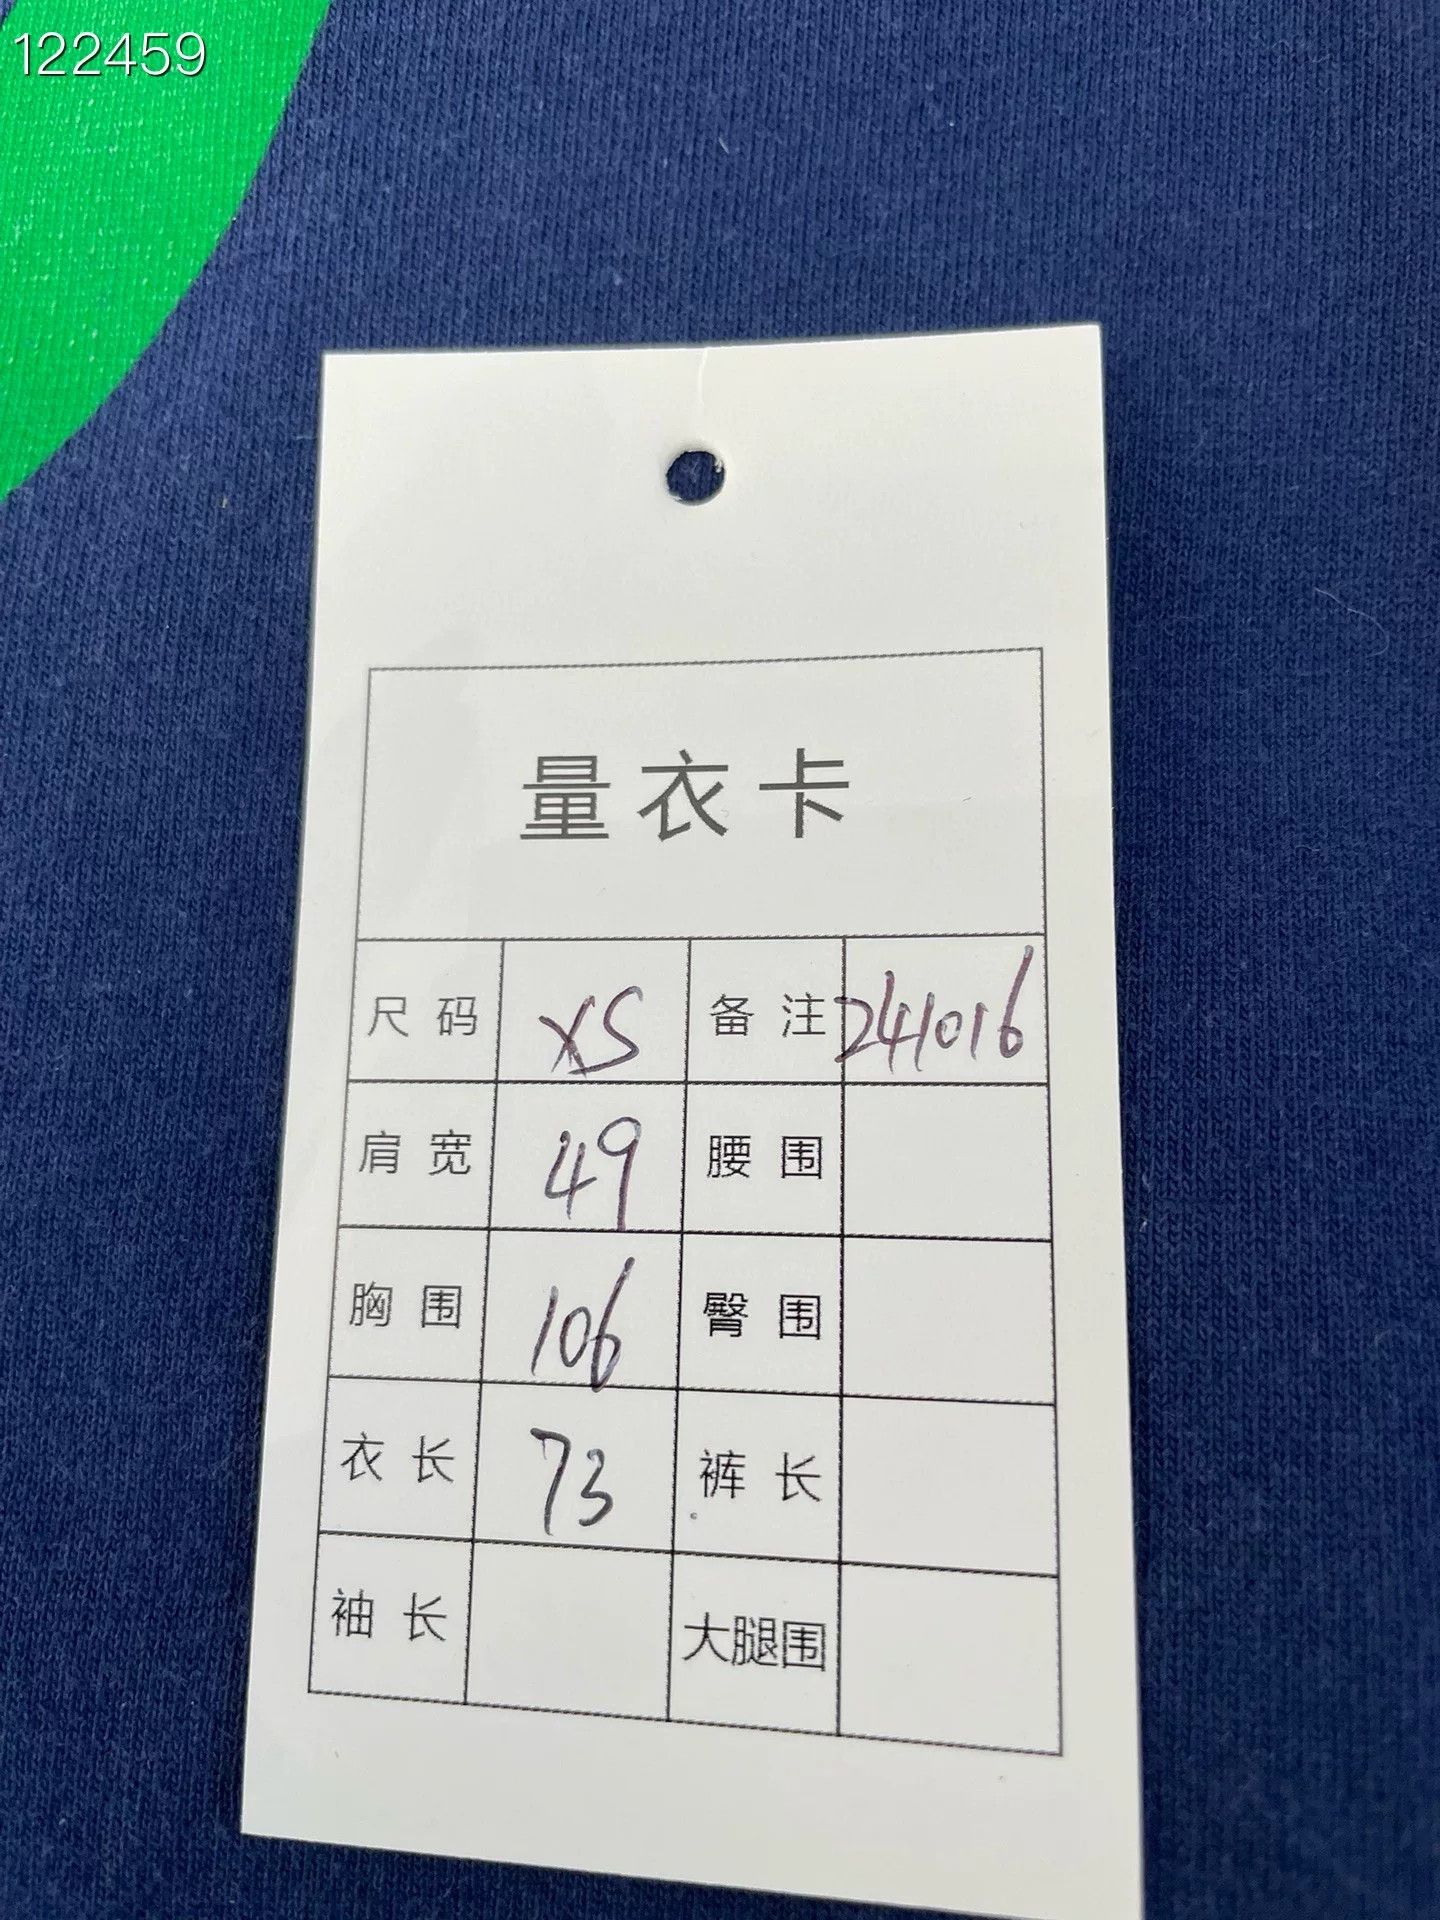 122459
量衣卡
尺码 XS 备注 241016
肩宽 49 腰围
胸围 106 臀围
衣长 73 裤长
袖长 大腿围